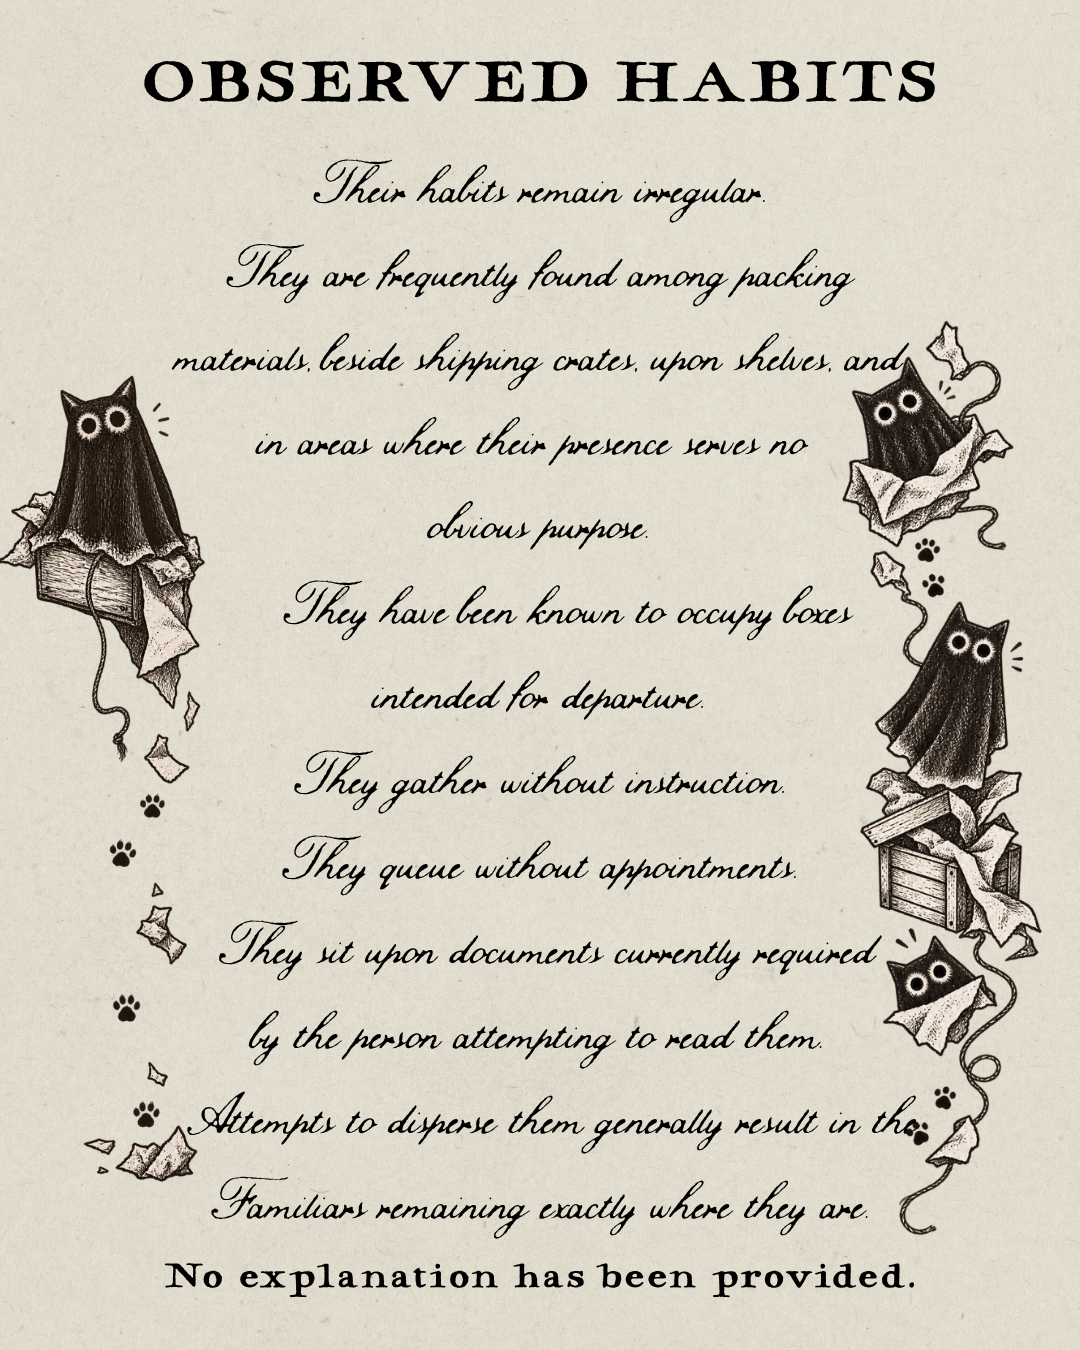 OBSERVED HABITS
Their habits remain irregular.
They are frequently found among packing
materials, beside shipping crates, upon shelves, and
in areas where their presence serves no
obvious purpose.
They have been known to occupy boxes
intended for departure.
They gather without instruction.
They queue without appointments.
They sit upon documents currently required
by the person attempting to read them.
Attempts to disperse them generally result in the
Familiars remaining exactly where they are.
No explanation has been provided.